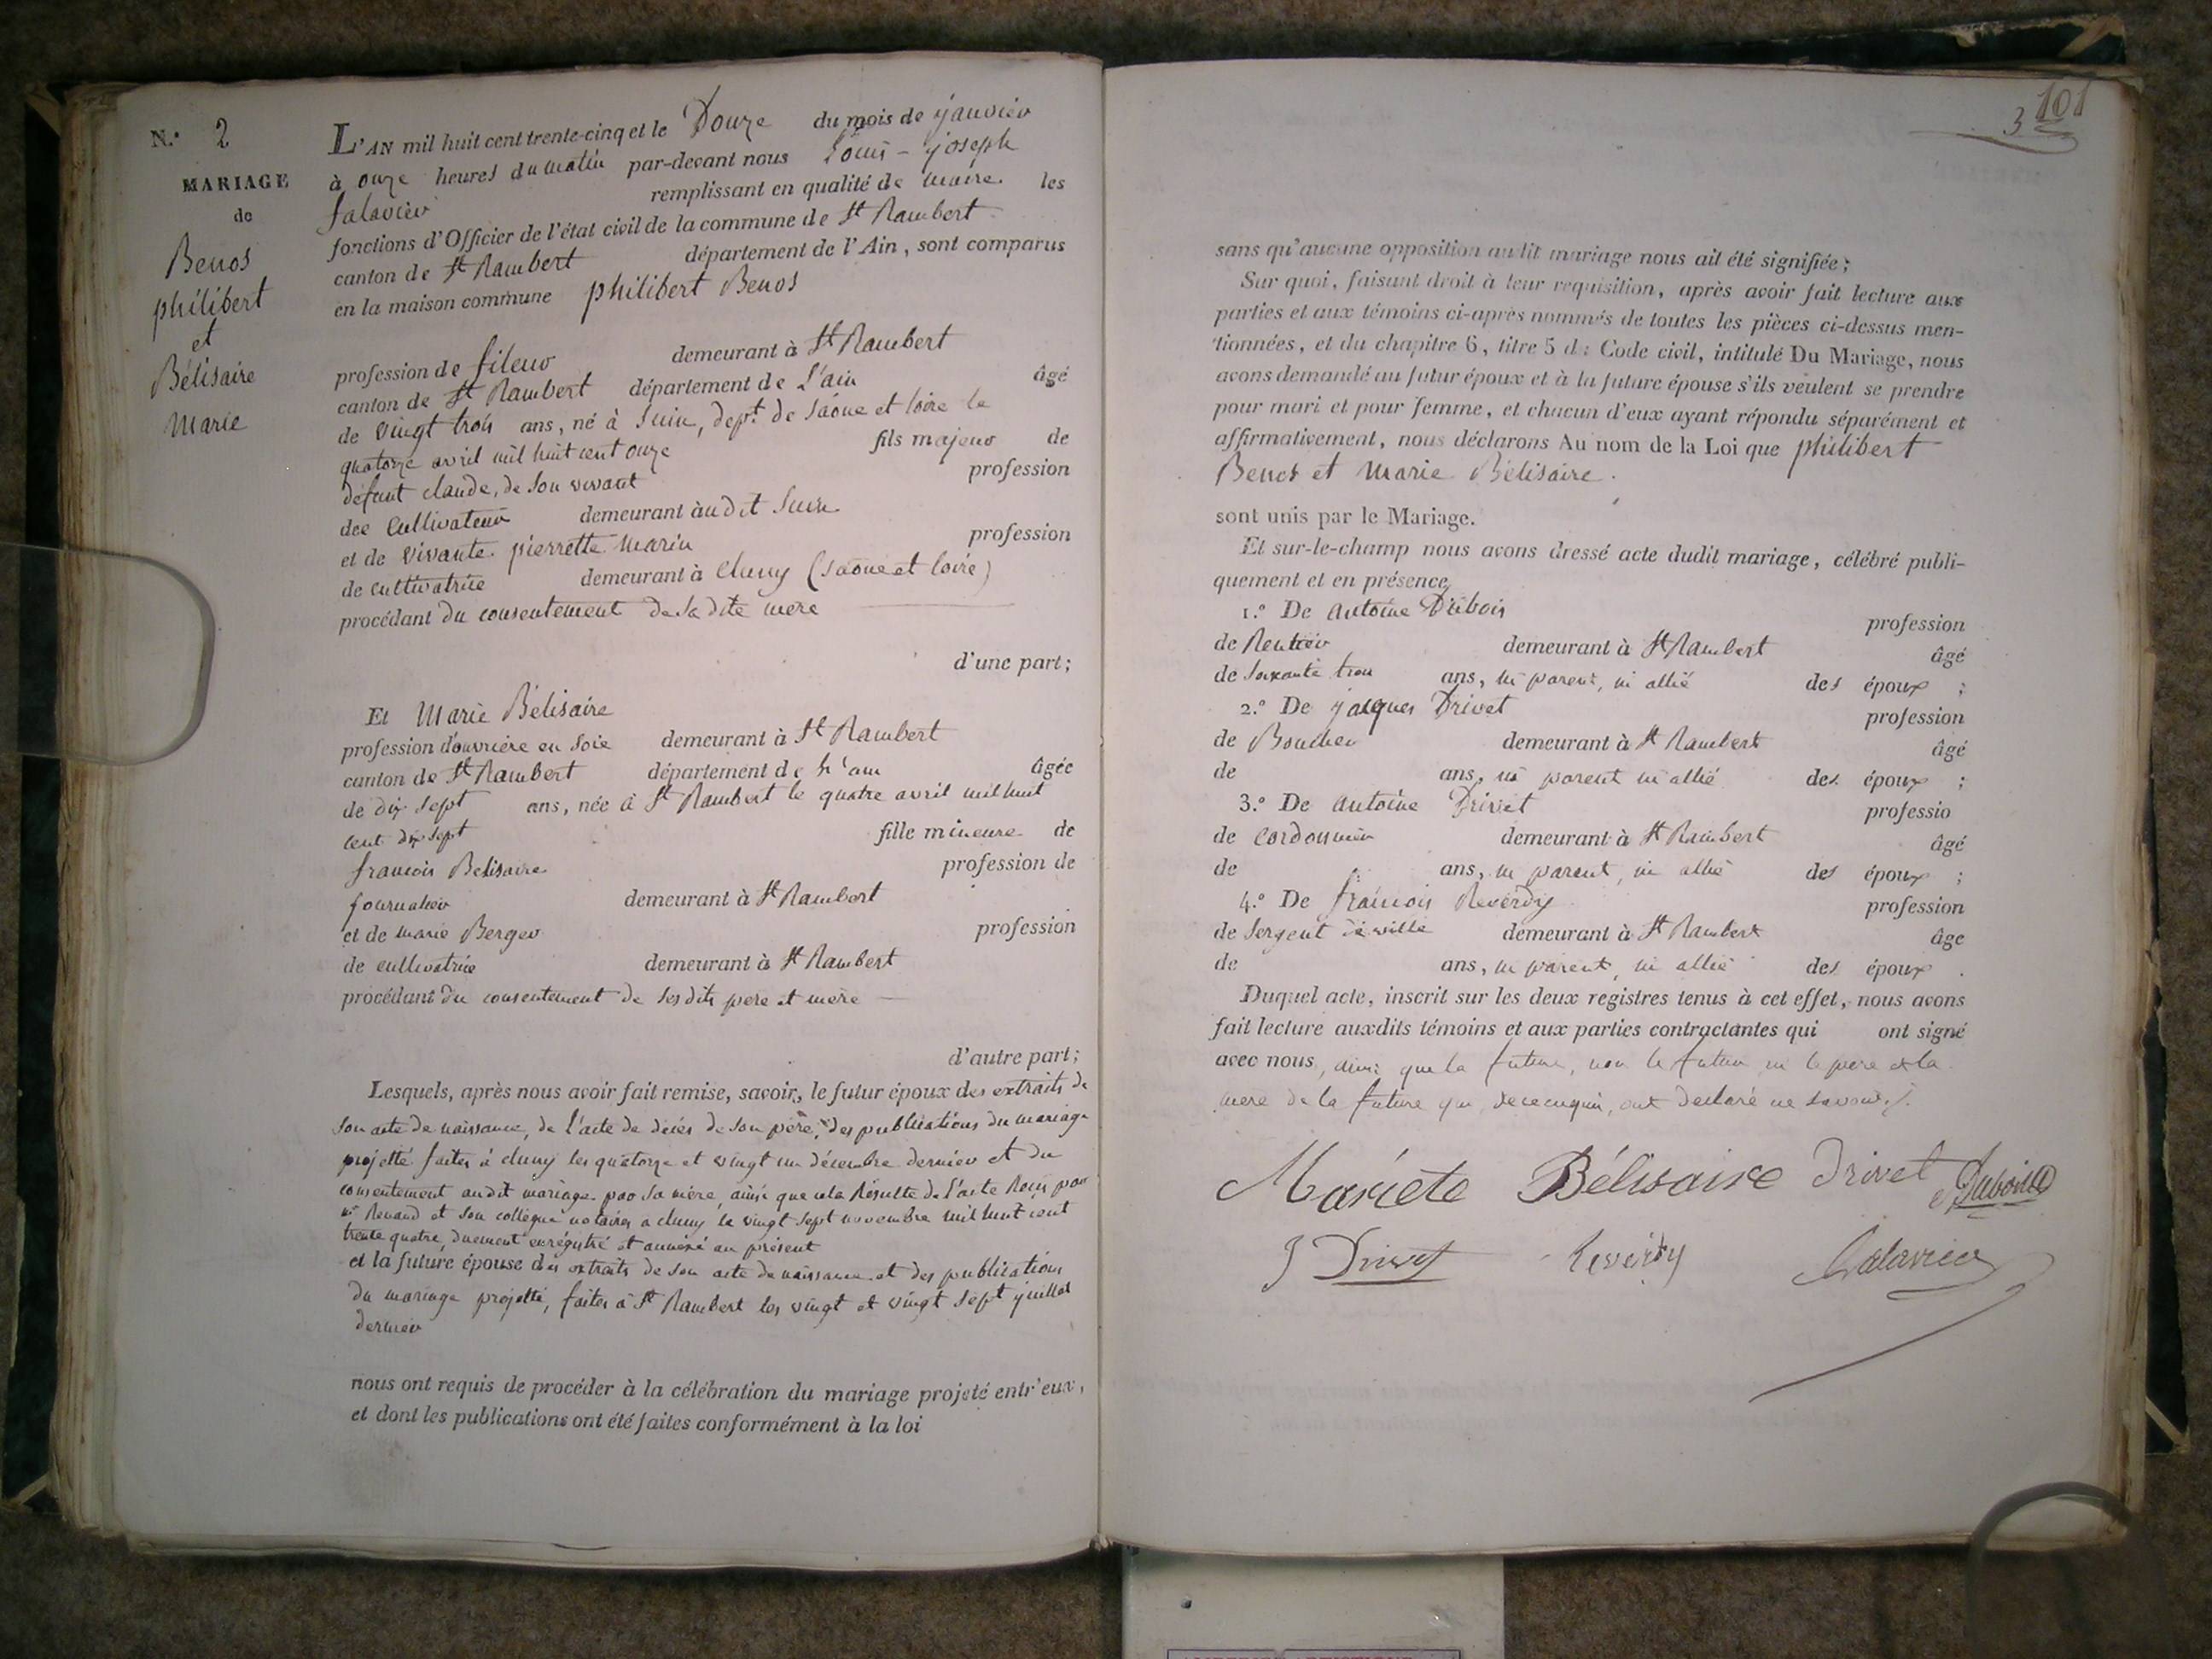 N.° 2
MARIAGE
de
Benos
philibert
et
Bélisaire
Marie
L'AN mil huit cent trente-cinq et le Douze du mois de janvier
à onze heures du matin par-devant nous Louis - joseph
falavier remplissant en qualité de maire les
fonctions d'Officier de l'état civil de la commune de St Rambert
canton de St Rambert département de l'Ain, sont comparus
en la maison commune philibert Benos
profession de fileur demeurant à St Rambert
canton de St Rambert département de L'ain âgé
de vingt trois ans, né à Suin, dept. de Saône et loire le
quatorze avril mil huit cent onze fils majeur de
défunt claude, de son vivant profession
de cultivateur demeurant àudit Suin
et de vivante pierrette marin profession
de cultivatrice demeurant à Cluny (saone et loire)
procédant du consentement de sa dite mere
d'une part;
Et Marie Bélisaire
profession d'ouvrière en soie demeurant à St Rambert
canton de St Rambert département de L'ain âgée
de dix sept ans, née à St Rambert le quatre avril mil huit
cent dix sept fille mineure de
francois Belisaire profession de
journalier demeurant à St Rambert
et de marie Berger profession
de cultivatrice demeurant à St Rambert
procédant du consentement de ses dits pere et mère
d'autre part;
Lesquels, après nous avoir fait remise, savoir, le futur époux des extraits de
son acte de naissance, de l'acte de décès de son père, des publications du mariage
projetté faites à cluny les quatorze et vingt un décembre dernier et du
consentement audit mariage par sa mère, ainsi que cela résulte de l'acte reçu par
Mr Renaud et son collegue notaires a cluny le vingt sept novembre mil huit cent
trente quatre, duement enrégistré et annéxé au présent
et la future épouse des extraits de son acte de naissance et des publications
du mariage projetté, faites à St Rambert les vingt et vingt sept juillet
dernier
nous ont requis de procéder à la célébration du mariage projeté entr'eux,
et dont les publications ont été faites conformément à la loi
3 101
sans qu'aucune opposition audit mariage nous ait été signifiée;
Sur quoi, faisant droit à leur requisition, après avoir fait lecture aux
parties et aux témoins ci-après nommés de toutes les pièces ci-dessus men-
tionnées, et du chapitre 6, titre 5 du Code civil, intitulé Du Mariage, nous
avons demandé au futur époux et à la future épouse s'ils veulent se prendre
pour mari et pour femme, et chacun d'eux ayant répondu séparément et
affirmativement, nous déclarons Au nom de la Loi que philibert
Benos et Marie Bélisaire.
sont unis par le Mariage.
Et sur-le-champ nous avons dressé acte dudit mariage, célébré publi-
quement et en présence
1.° De antoine Dubois profession
de Rentier demeurant à St Rambert âgé
de soixante trois ans, ni parent, ni allié des époux ;
2.° De jacques Drivet profession
de Boucher demeurant à St Rambert âgé
de ans, ni parent ni allié des époux ;
3.° De antoine Drivet professio
de cordonnier demeurant à St Rambert âgé
de ans, ni parent, ni allié des époux ;
4.° De françois Reverdy profession
de sergent de ville demeurant à St Rambert âge
de ans, ni parent, ni allié des époux .
Duquel acte, inscrit sur les deux registres tenus à cet effet, nous avons
fait lecture auxdits témoins et aux parties contractantes qui ont signé
avec nous, ainsi que la future, non le futur ni le pere et la
mere de la future qui, de ce enquis, ont declaré ne savoir
Mariete Bélisaire Drivet Dubois
J Drivet Reverdy falavier